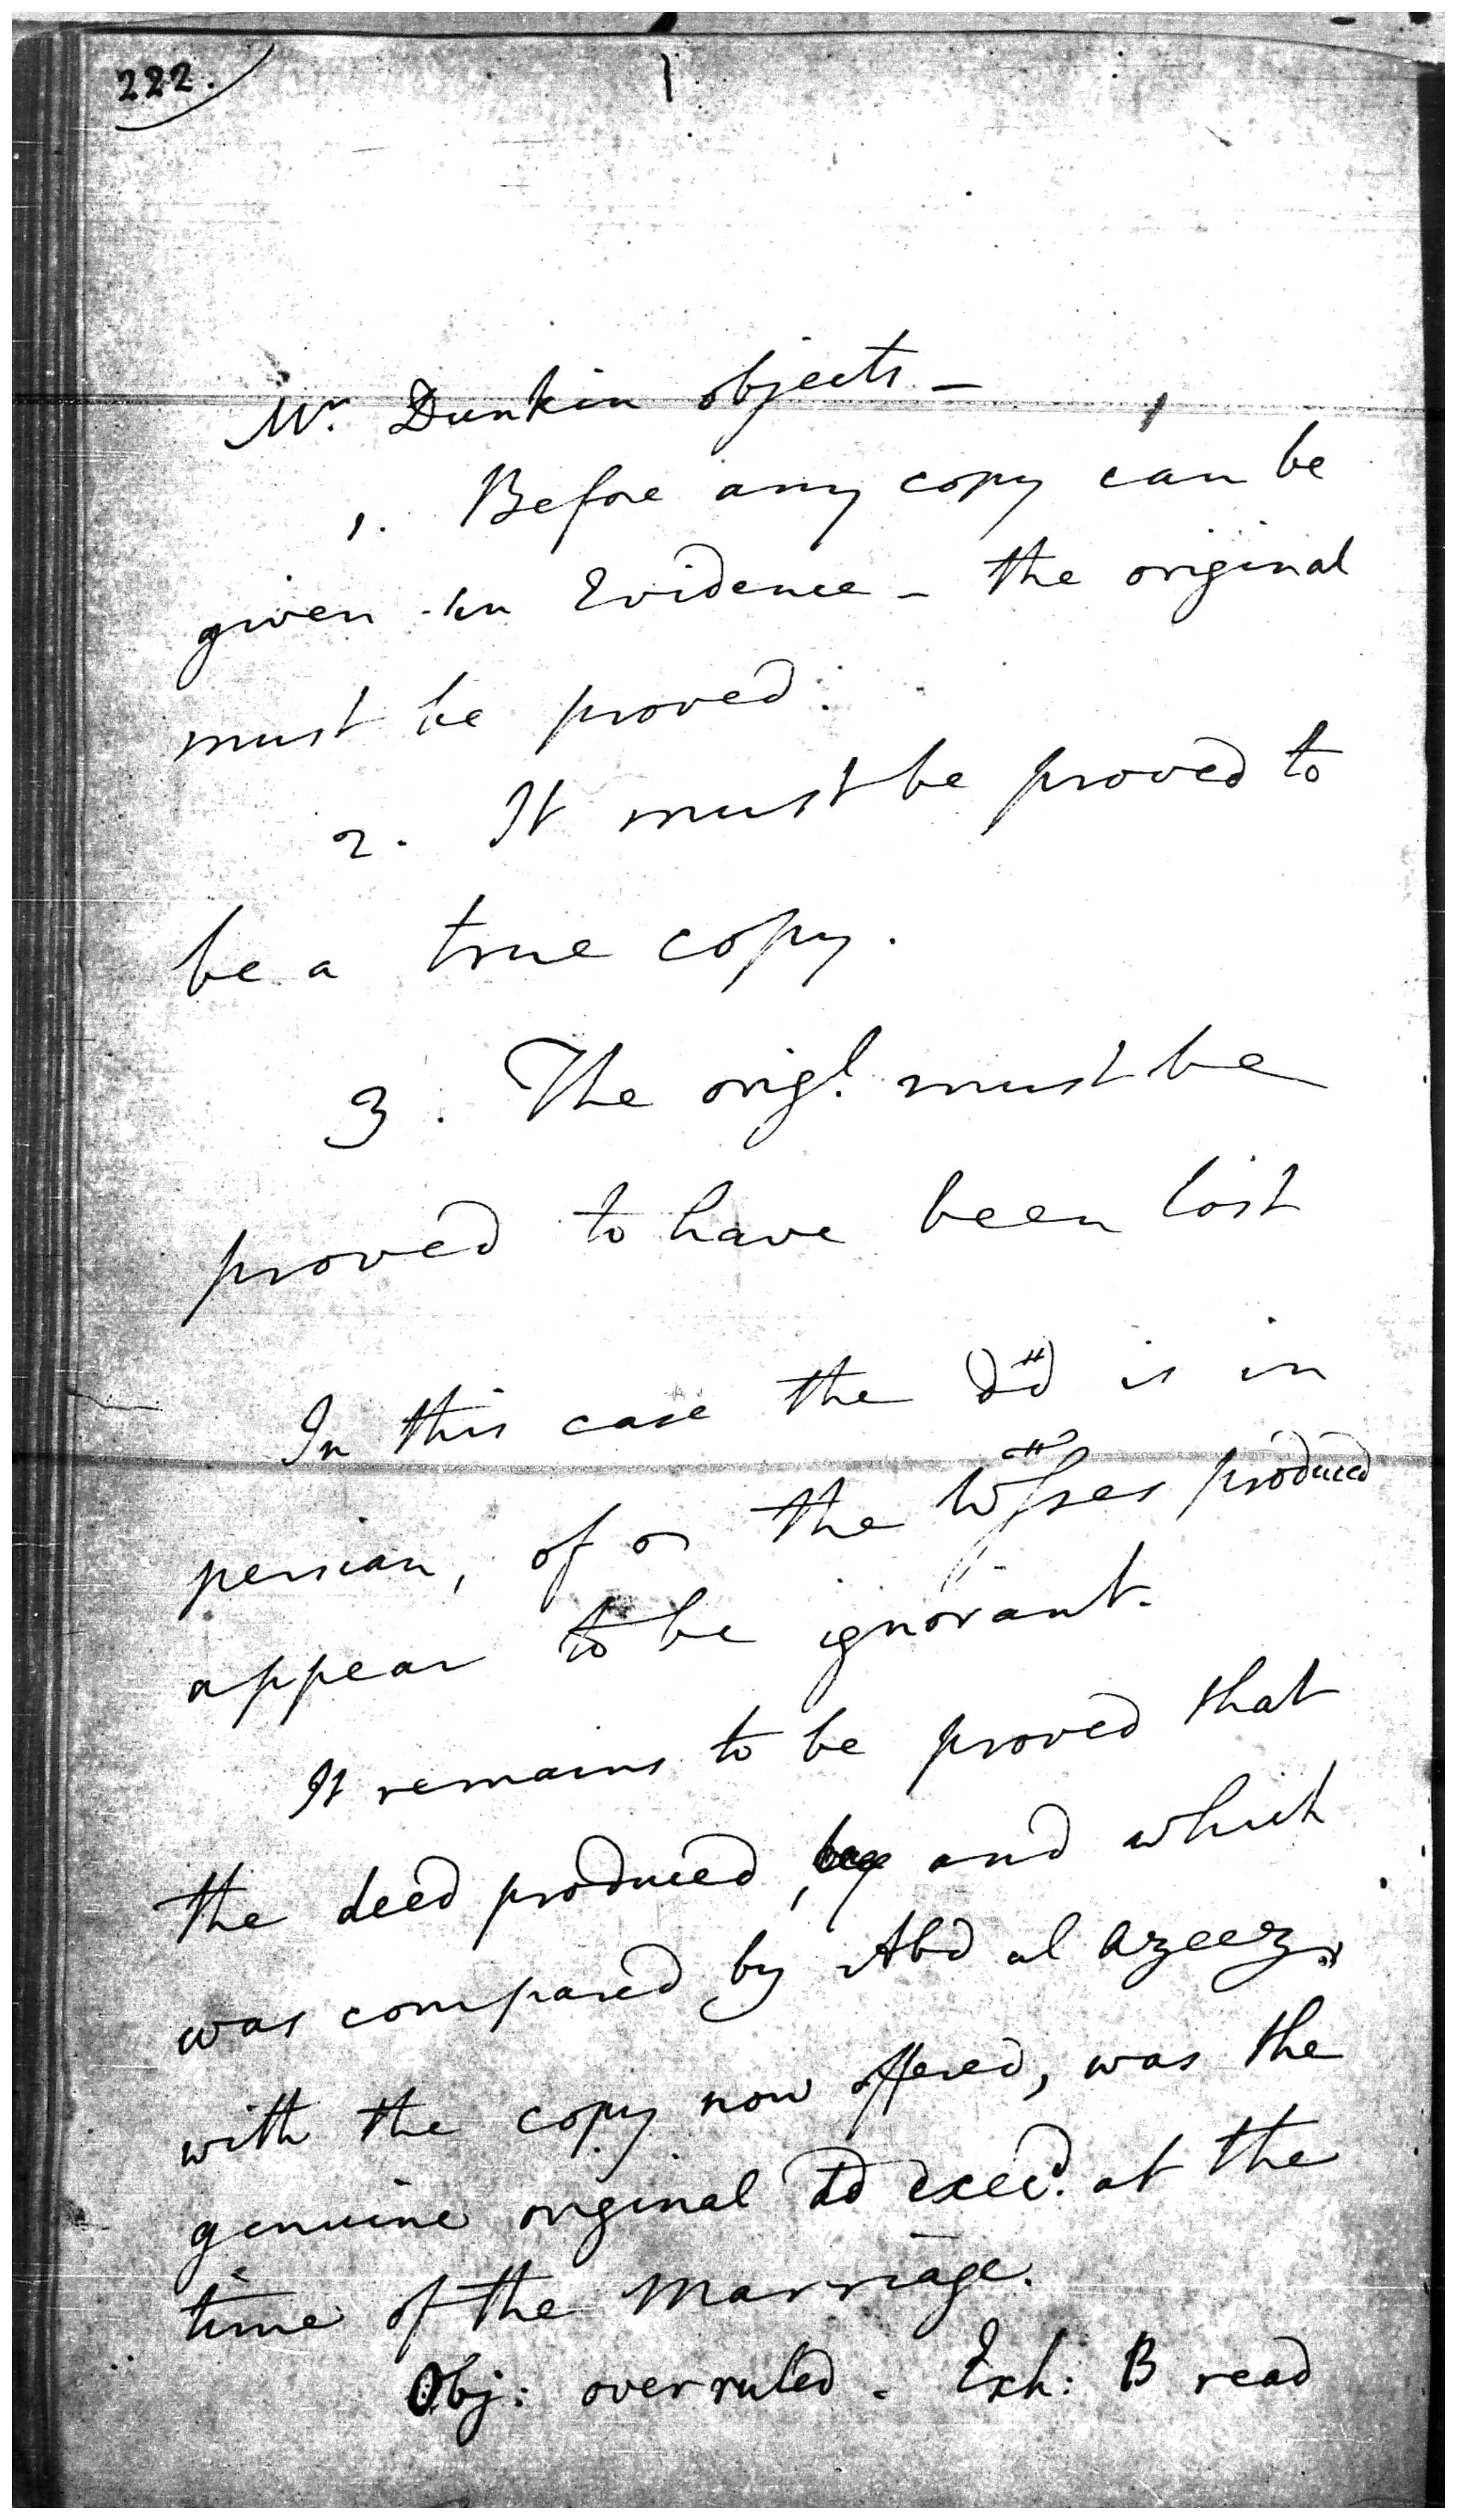 222.
Mr. Dunkin objects –
1. Before any copy can be
given in Evidence – the original
must be proved.
2. It must be proved to
be a true copy.
3. The origl. must be
proved to have been lost
In this case the Dd is in
persian, of the Wsses produced
appear to be ignorant.
It remains to be proved that
the deed produced, and which
was compared by Abd al Azeez
with the copy now offered, was the
genuine original Dd execd. at the
time of the Marriage.
Obj: overruled. Exh: B read